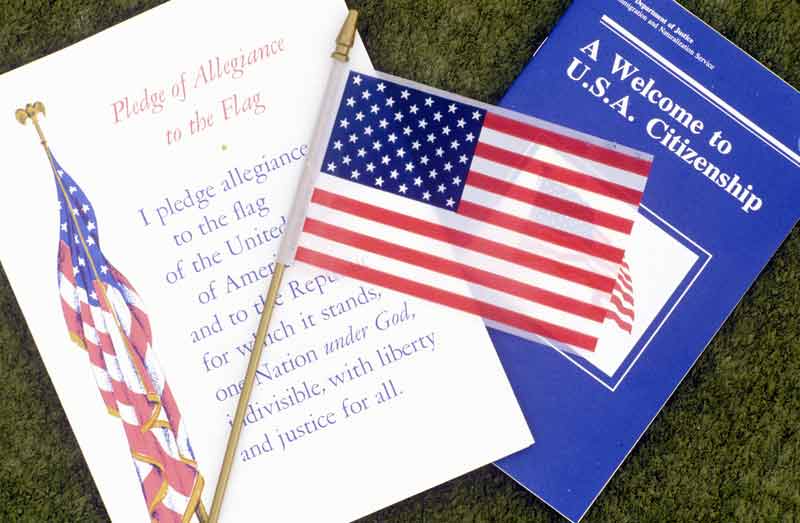 Pledge of Allegiance
to the Flag
I pledge allegiance
to the flag
of the United
of Amer
and to the Repu
for which it stands,
one Nation under God,
indivisible, with liberty
and justice for all.
Department of Justice
Immigration and Naturalization Service
A Welcome to
U.S.A. Citizenship